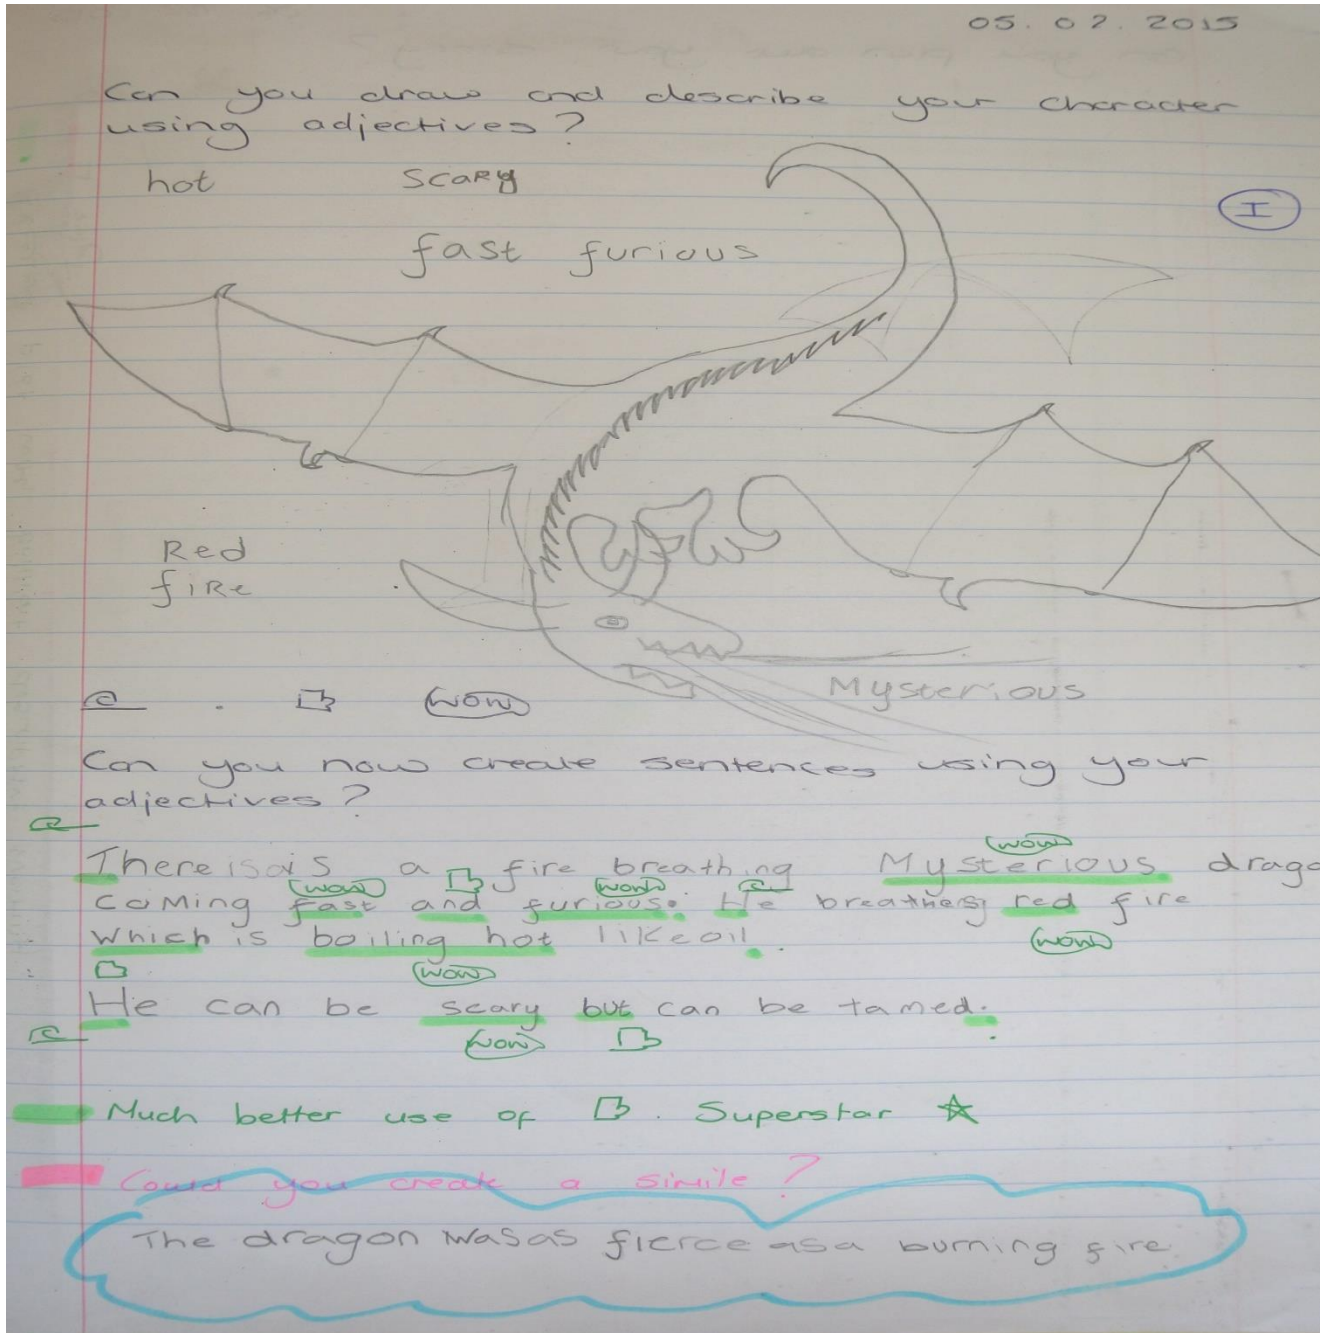 05.02.2015
Can you draw and describe your character
using adjectives?
hot scary
I
fast furious
Red
fire
Mysterious
wow
Can you now create sentences using your
adjectives?
wow
There is a fire breathing Mysterious drago
wow wow
coming fast and furious. He breathes red fire
which is boiling hot like oil.
wow
wow
He can be scary but can be tamed.
wow
Much better use of . Superstar
Could you create a simile?
The dragon was as fierce as a burning fire